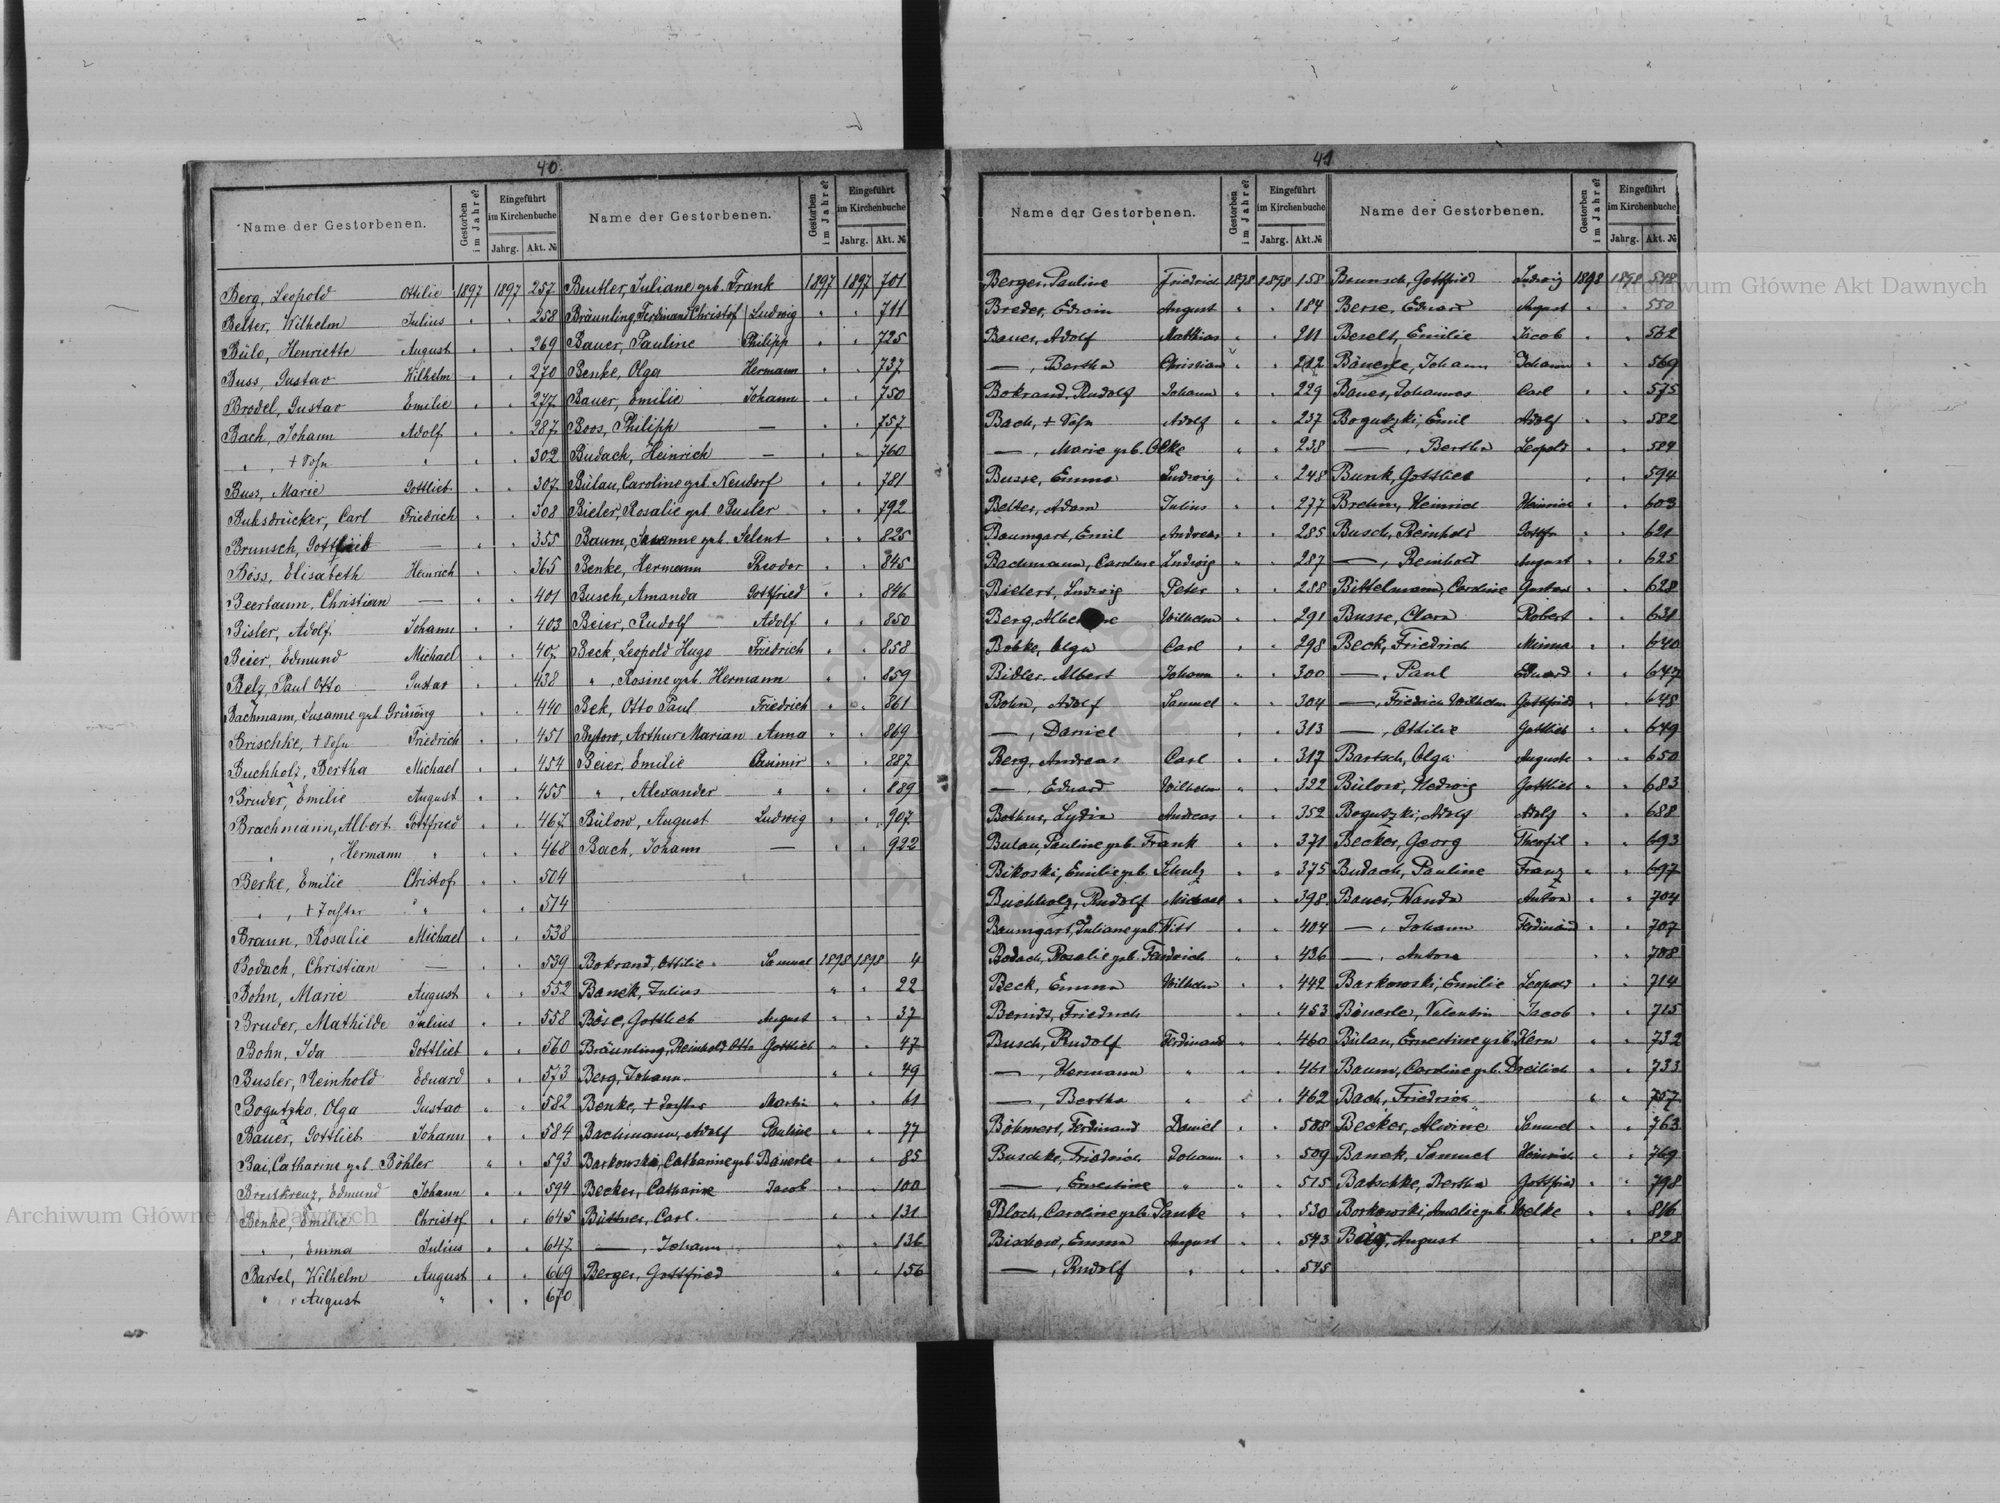 40
Name der Gestorbenen. Gestorben im Jahre? Eingeführt im Kirchenbuche Jahrg. Akt. №
Berg, Leopold Ottilie 1897 1897 257
Belter, Wilhelm Julius " " 258
Bülo, Henriette August " " 269
Buss, Gustav Wilhelm " " 270
Bredel, Gustav Emilie " " 277
Bach, Johann Adolf " " 287
" , + Sohn " " " 302
Buss, Marie Gottlieb " " 307
Buksdrücker, Carl Friedrich " " 308
Brunsch, Gottlieb — " " 355
Böss, Elisabeth Heinrich " " 365
Beerbaum, Christian — " " 401
Bisler, Adolf Johann " " 403
Beier, Edmund Michael " " 407
Belz, Paul Otto Gustav " " 438
Bachmann, Susanne geb. " " 440
Brischke, + Sohn Friedrich " " 451
Buchholz, Bertha Michael " " 454
Bruder, Emilie August " " 455
Brachmann, Albert Gottfried " " 467
" , Hermann " " " 468
Berke, Emilie Christof " " 504
" , + Tochter " " " 514
Braun, Rosalie Michael " " 538
Bodach, Christian — " " 539
Bohn, Marie August " " 552
Bruder, Mathilde Julius " " 558
Bohn, Ida Gottlieb " " 560
Busler, Reinhold Eduard " " 573
Bogutzko, Olga Gustav " " 582
Bauer, Gottlieb Johann " " 584
Bai, Catharine geb. Böhler " " 593
Breitkreuz, Edmund Johann " " 594
Benke, Emilie Christof " " 645
" , Emma Julius " " 647
Bartel, Wilhelm August " " 669
" , August " " " 670
Name der Gestorbenen. Gestorben im Jahre? Eingeführt im Kirchenbuche Jahrg. Akt. №
Beutler, Juliane geb. Frank 1897 1897 701
Bräunling, Ferdinand Christof Ludwig " " 711
Bauer, Pauline Philipp " " 725
Benke, Olga Hermann " " 737
Bauer, Emilie Johann " " 750
Boos, Philipp — " " 757
Budach, Heinrich — " " 760
Bülau, Caroline geb. Neudorf " " 781
Bieler, Rosalie geb. Busler " " 792
Baum, Susanne geb. Selent " " 825
Benke, Hermann Theodor " " 845
Busch, Amanda Gottfried " " 846
Beier, Rudolf Adolf " " 850
Beck, Leopold Hugo Friedrich " " 858
" , Rosine geb. Hermann " " 859
Bek, Otto Paul Friedrich " " 861
Bytow, Arthur Marian Anna " " 869
Beier, Emilie Casimir " " 887
" , Alexander " " " 889
Bülow, August Ludwig " " 907
Bach, Johann — " " 922
Bokrand, Ottilie Samuel 1898 1898 4
Banek, Julius " " 22
Böse, Gottlieb August " " 37
Bräunling, Reinhold Otto Gottlieb " " 47
Berg, Johann " " 49
Benke, + Tochter Martin " " 61
Bachmann, Adolf Pauline " " 77
Barkowski, Catharine geb. Bäuerle " " 85
Becker, Catharine Jacob " " 100
Büttner, Carl " " 131
— , Johann " " 136
Berger, Gottfried " " 156
41
Name der Gestorbenen. Gestorben im Jahre? Eingeführt im Kirchenbuche Jahrg. Akt. №
Berger, Pauline Friedrich 1898 1898 158
Breder, Edwin August " " 184
Bauer, Adolf Mathias " " 211
— , Bertha Christian " " 212
Bokrand, Rudolf Johann " " 229
Bach, + Sohn Adolf " " 237
— , Marie geb. Olke " " 238
Busse, Emma Ludwig " " 248
Belter, Adam Julius " " 277
Baumgart, Emil Andreas " " 285
Bachmann, Caroline Ludwig " " 287
Bielert, Ludwig Peter " " 288
Berg, Wilhelm " " 291
Bobke, Olga Carl " " 298
Bidler, Albert Johann " " 300
Bohn, Adolf Samuel " " 304
— , Daniel " " 313
Berg, Andreas Carl " " 317
— , Eduard Wilhelm " " 322
Bothur, Lydia Andreas " " 352
Bulau, Pauline geb. Frank " " 371
Bikoski, Emilie geb. Schulz " " 375
Buchholz, Rudolf Michael " " 398
Baumgart, Juliane geb. Witt " " 404
Bodach, Rosalie geb. " " 436
Beck, Emma Wilhelm " " 442
Berndt, Friedrich " " 453
Busch, Rudolf Ferdinand " " 460
— , Hermann " " " 461
— , Bertha " " " 462
Böhmert, Ferdinand Daniel " " 508
Buschke, Friedrich Johann " " 509
— , Ernestine " " " 515
Bloch, Caroline geb. Janke " " 530
Bischow, Emma August " " 543
— , Rudolf " " " 545
Name der Gestorbenen. Gestorben im Jahre? Eingeführt im Kirchenbuche Jahrg. Akt. №
Brunsch, Gottfried Ludwig 1898 1898 548
Berse, Eduard August " " 550
Beselt, Emilie Jacob " " 562
Bäuerle, Johann Johann " " 569
Bauer, Johannes Carl " " 575
Bogutzki, Emil Adolf " " 582
— , Bertha Leopold " " 584
Bunk, Gottlieb " " 594
Brehm, Heinrich Heinrich " " 603
Busch, Reinhold " " 621
— , Reinhold August " " 625
Bittelmann, Caroline Gustav " " 628
Busse, Clara Robert " " 631
Beck, Friedrich Minna " " 640
— , Paul Eduard " " 647
— , Friedrich Wilhelm Gottfried " " 648
— , Ottilie Gottlieb " " 649
Bartsch, Olga Auguste " " 650
Bülow, Hedwig Gottlieb " " 683
Bogutzki, Adolf Adolf " " 688
Becker, Georg Theofil " " 693
Budach, Pauline Franz " " 697
Bauer, Wanda Anton " " 704
— , Johann Ferdinand " " 707
— , Anton " " 708
Barkowski, Emilie Leopold " " 714
Bäuerle, Valentin Jacob " " 715
Bülau, Ernestine geb. Kern " " 732
Baum, Caroline geb. Dreilich " " 733
Bach, Friedrich " " 757
Becker, Alwine Samuel " " 763
Banek, Samuel Heinrich " " 769
Batschke, Bertha Gottfried " " 798
Borkowski, Amalie geb. Welke " " 816
August " " 828
Archiwum Główne Akt Dawnych
Archiwum Główne Akt Dawnych